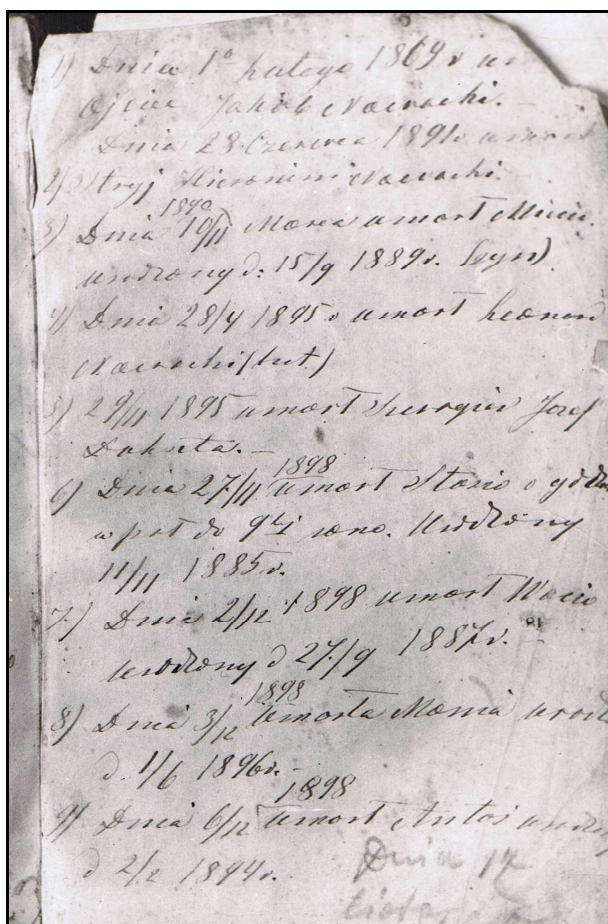 1) Dnia 1º Lutego 1869 r
Ojciec Jakób Nawrocki. —
Dnia 28 Czerwca 1891 umarł
2) Stryj Hieronim Nawrocki.
1890
3) Dnia 10/II Marca umarł Miecio
urodzony d: 15/9 1889 r. (syn)
4) Dnia 28/4 1895 r umarł Leonard
Nawrocki
5) 29/II 1895 umarł Szwagier Józef
—
1898
6) Dnia 27/11 umarł Stasio o godz
w pół do 9tej rano. Urodzony
11/11 1885 r.
7) Dnia 2/12 1898 umarł Wacio
urodzony d 27/9 1887 r. —
1898
8) Dnia 3/12 umarła Mania urodz
d. 1/6 1896 r. —
1898
9) Dnia 6/12 umarł Antoś urodzony
d 2/2 1894 r.
Dnia 14